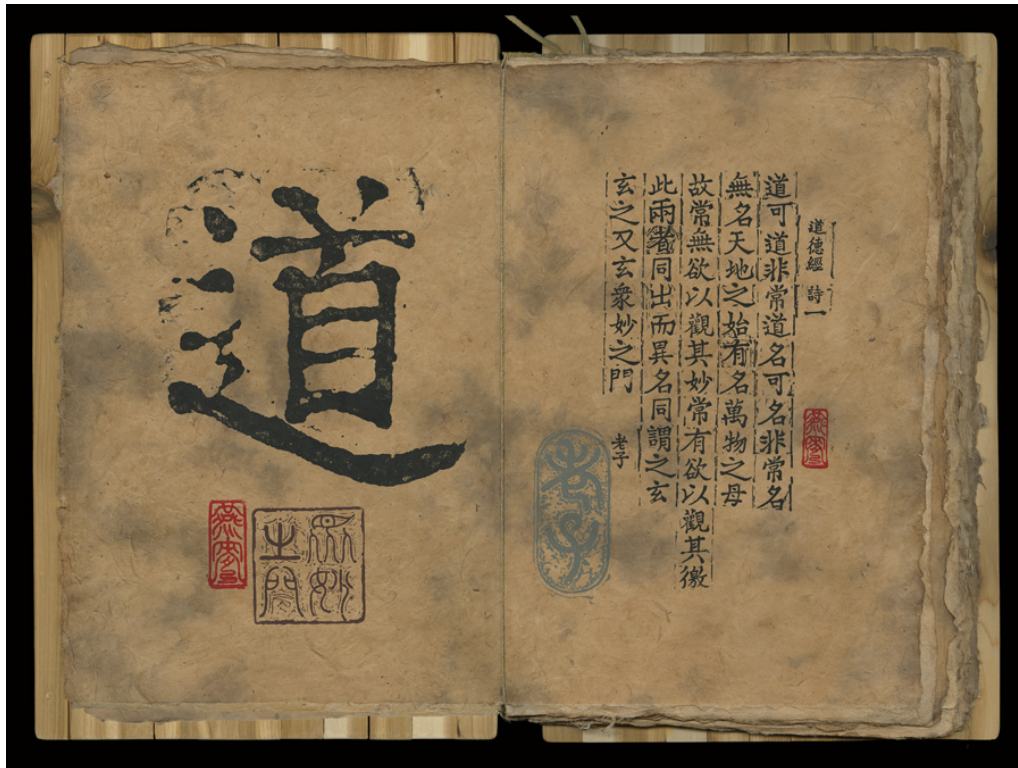 道德經 詩一
道可道非常道名可名非常名
無名天地之始有名萬物之母
故常無欲以觀其妙常有欲以觀其徼
此兩者同出而異名同謂之玄
玄之又玄衆妙之門
老子
老子
道
眾妙
之門